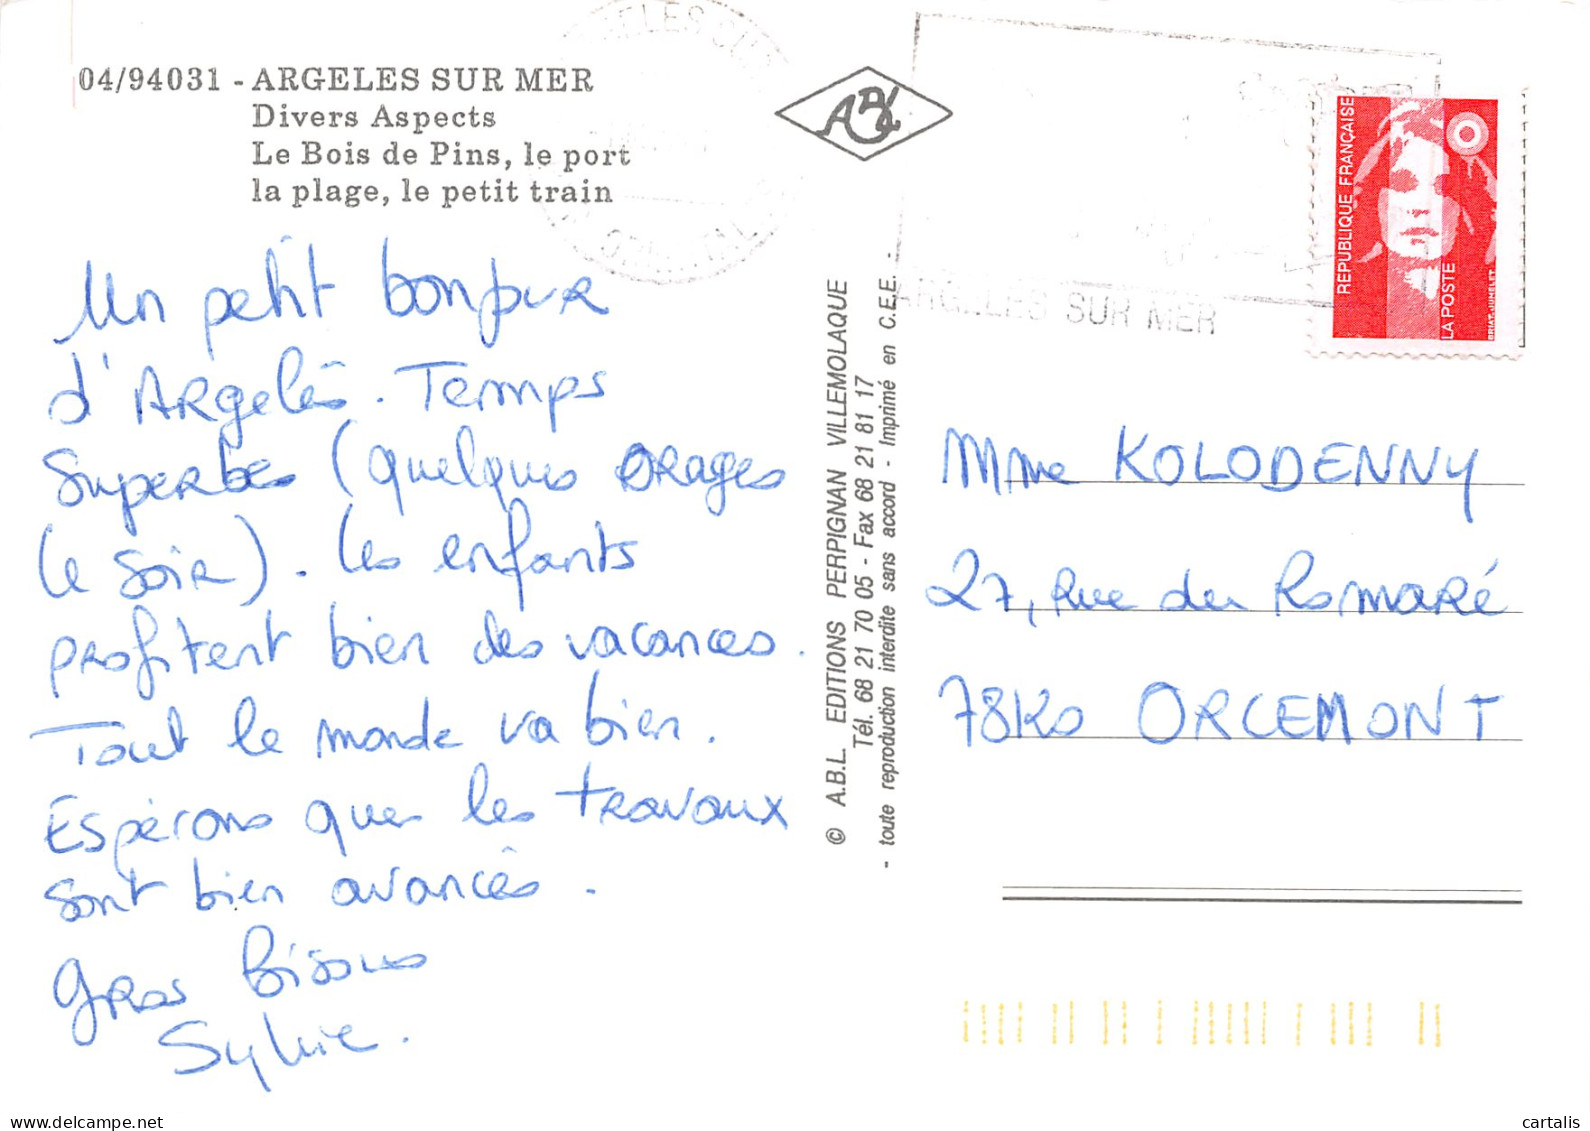 04/94031 - ARGELES SUR MER
Divers Aspects
Le Bois de Pins, le port
la plage, le petit train
Un petit bonjour
d'Argelès. Temps
Superbes (quelques orages
le soir). Les enfants
profitent bien des vacances.
Tout le monde va bien.
Espérons que les travaux
sont bien avancés.
Gros Bisous
Sylvie.
© A.B.L. EDITIONS PERPIGNAN VILLEMOLAQUE
Tél. 68 21 70 05 - Fax 68 21 81 17
- toute reproduction interdite sans accord - Imprimé en C.E.E. -
ABL
ARGELES SUR MER
REPUBLIQUE FRANÇAISE
LA POSTE
BRIAT-JUMELET
Mme KOLODENNY
27, Rue du Romaré
78120 ORCEMONT
www.delcampe.net
cartalis